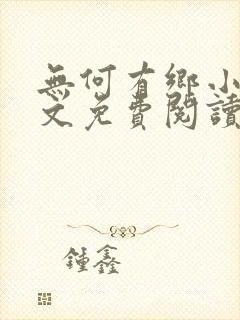 無何有鄉小
文免費閱讀
鍾鑫